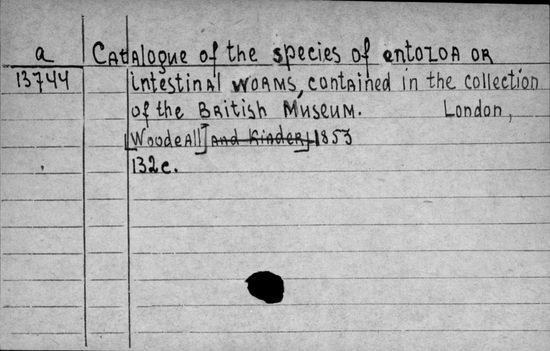 a Catalogue of the species of entozoa or
13744 intestinal worms, contained in the collection
of the British Museum. London,
[Woodfall] [and Kinder] 1853
132c.